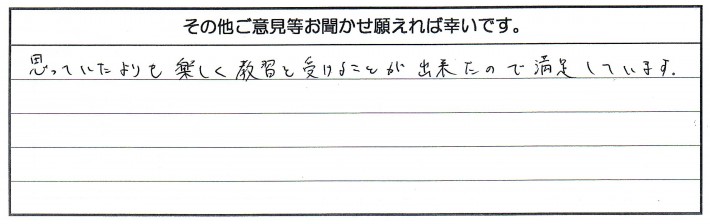 その他ご意見等お聞かせ願えれば幸いです。
思っていたよりも楽しく教習を受けることが出来たので満足しています.